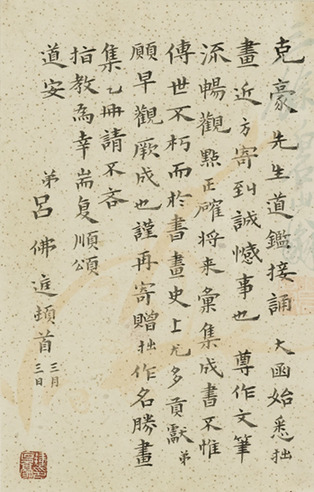 克豪先生道鑑接誦 大函始悉拙
畫近方寄到誠憾事也 尊作文筆
流暢觀點正確将来彙集成書不惟
傳世不朽而於書畫史上尤多貢獻弟
願早觀厥成也謹再寄贈拙作名勝畫
集乙冊請不吝
指教為幸耑复順頌
道安
弟 呂佛庭頓首 三月三日